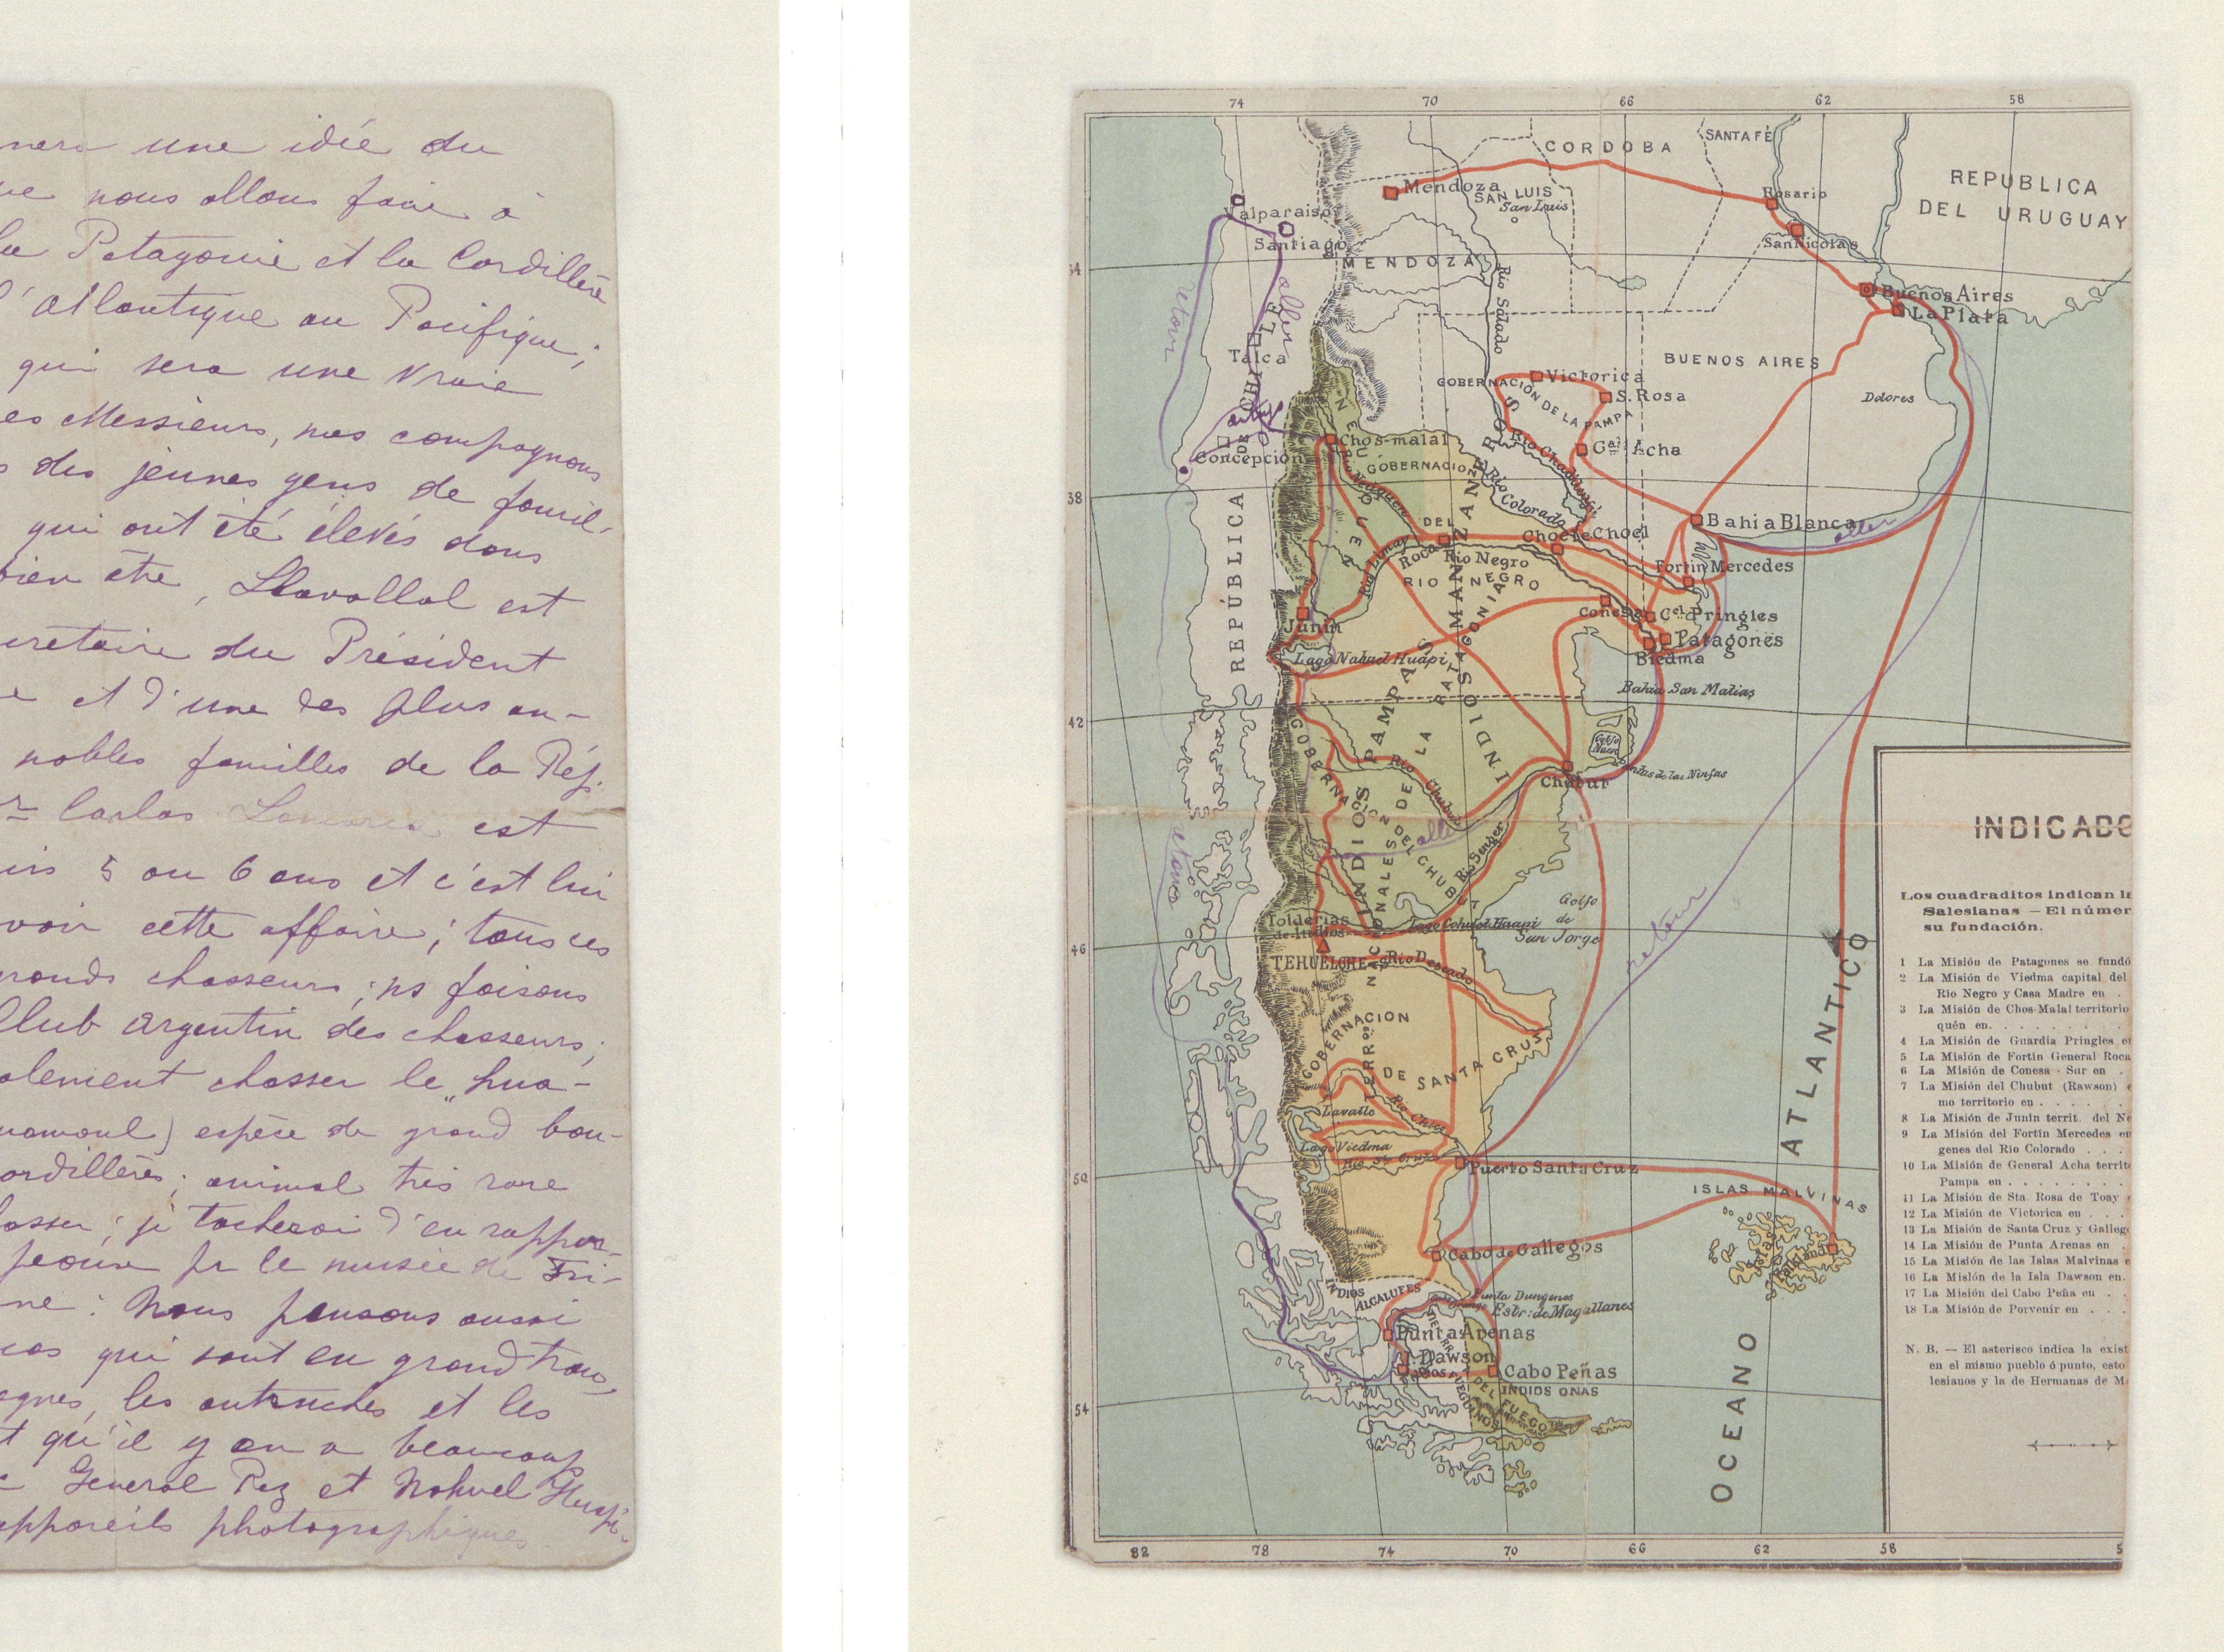 une idée du
nous allons faire à
la Patagonie et la Cordillère
l'Atlantique au Pacifique;
qui sera une vraie
es Messieurs, nos compagnons
des jeunes gens de famil-
qui ont été élevés dans
bien être, Llavallol est
crétaire du Président
e et d'une des plus an-
nobles familles de la Rép.
Carlos est
is 5 ou 6 ans et c'est lui
voir cette affaire; tous ces
rands chasseurs; ns faisons
Club argentin des chasseurs;
alement chasser le "hua-
espèce de grand bou-
ordillères; animal très rare
asser; je tacherai d'en rappor-
peaux pr le musée de Fri-
ne: Nous pensons aussi
qui sont en grand
agnes, les autruches et les
t qu'il y en a beaucoup
General Paz et Nahuel Huapi
appareils photographiques
74 70 66 62 58
CORDOBA
SANTA FÉ
REPUBLICA
DEL URUGUAY
Mendoza
SAN LUIS
San Luis
Rosario
San Nicolas
Valparaiso
Santiago
MENDOZA
34
Rio Salado
Buenos Aires
La Plata
retour
aller
Talca
REPÚBLICA DE CHILE
BUENOS AIRES
Victorica
GOBERNACION DE LA PAMPA
S. Rosa
Dolores
Concepción
Chos-malal
Gral. Acha
Rio Chadileuvú
GOBERNACION
NEUQUEN
Rio Neuquen
Rio Colorado
38
DEL
Bahia Blanca
aller
Roca
Choele Choel
Rio Limay
Rio Negro
RIO NEGRO
Fortin Mercedes
Junin
Conesa
Cel. Pringles
Patagones
Biedma
Lago Nahuel Huapi
Bahia San Matias
42
Golfo Nuevo
INDIOS PAMPAS
INDIOS MANZANEROS
NACIONALES DE LA PATAGONIA
GOBERNACION DEL CHUBUT
Rio Chubut
Chubut
Puntas de las Ninfas
aller
Rio Senger
retour
Golfo
de
San Jorge
Tolderias
de Indios
Lago Coluhé Huapi
46
TEHUELCHE
Rio Deseado
retour
GOBERNACION
DE SANTA CRUZ
TERROS.
Rio Chico
Lago Viedma
Rio Sta. Cruz
Puerto Santa Cruz
50
ISLAS MALVINAS
Cabo de Gallegos
Islas Falkland
INDIOS
ALCALUFES
Punta Dungenes
Estr: de Magallanes
Punta Arenas
I. Dawson
Cabo Peñas
INDIOS ONAS
DEL FUEGO
54
OCEANO ATLANTICO
82 78 74 70 66 62 58 5
INDICADO
Los cuadraditos indican la
Salesianas — El númer
su fundación.
1 La Misión de Patagones se fundó
2 La Misión de Viedma capital del
Río Negro y Casa Madre en .
3 La Misión de Chos-Malal territorio
quén en. . . . . . . . .
4 La Misión de Guardia Pringles en
5 La Misión de Fortin General Roca
6 La Misión de Conesa - Sur en .
7 La Misión del Chubut (Rawson) e
mo territorio en . . . . . .
8 La Misión de Junin territ. del Ne
9 La Misión del Fortín Mercedes en
genes del Río Colorado . . .
10 La Misión de General Acha territo
Pampa en . . . . . . . .
11 La Misión de Sta. Rosa de Toay
12 La Misión de Victorica en . . .
13 La Misión de Santa Cruz y Gallego
14 La Misión de Punta Arenas en .
15 La Misión de las Islas Malvinas e
16 La Misión de la Isla Dawson en.
17 La Misión del Cabo Peña en . .
18 La Misión de Porvenir en . . .
N. B. — El asterisco indica la exist
en el mismo pueblo ó punto, esto
lesianos y la de Hermanas de M